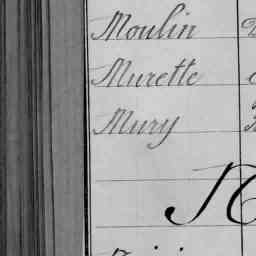 Moulin
Murette
Mury
N